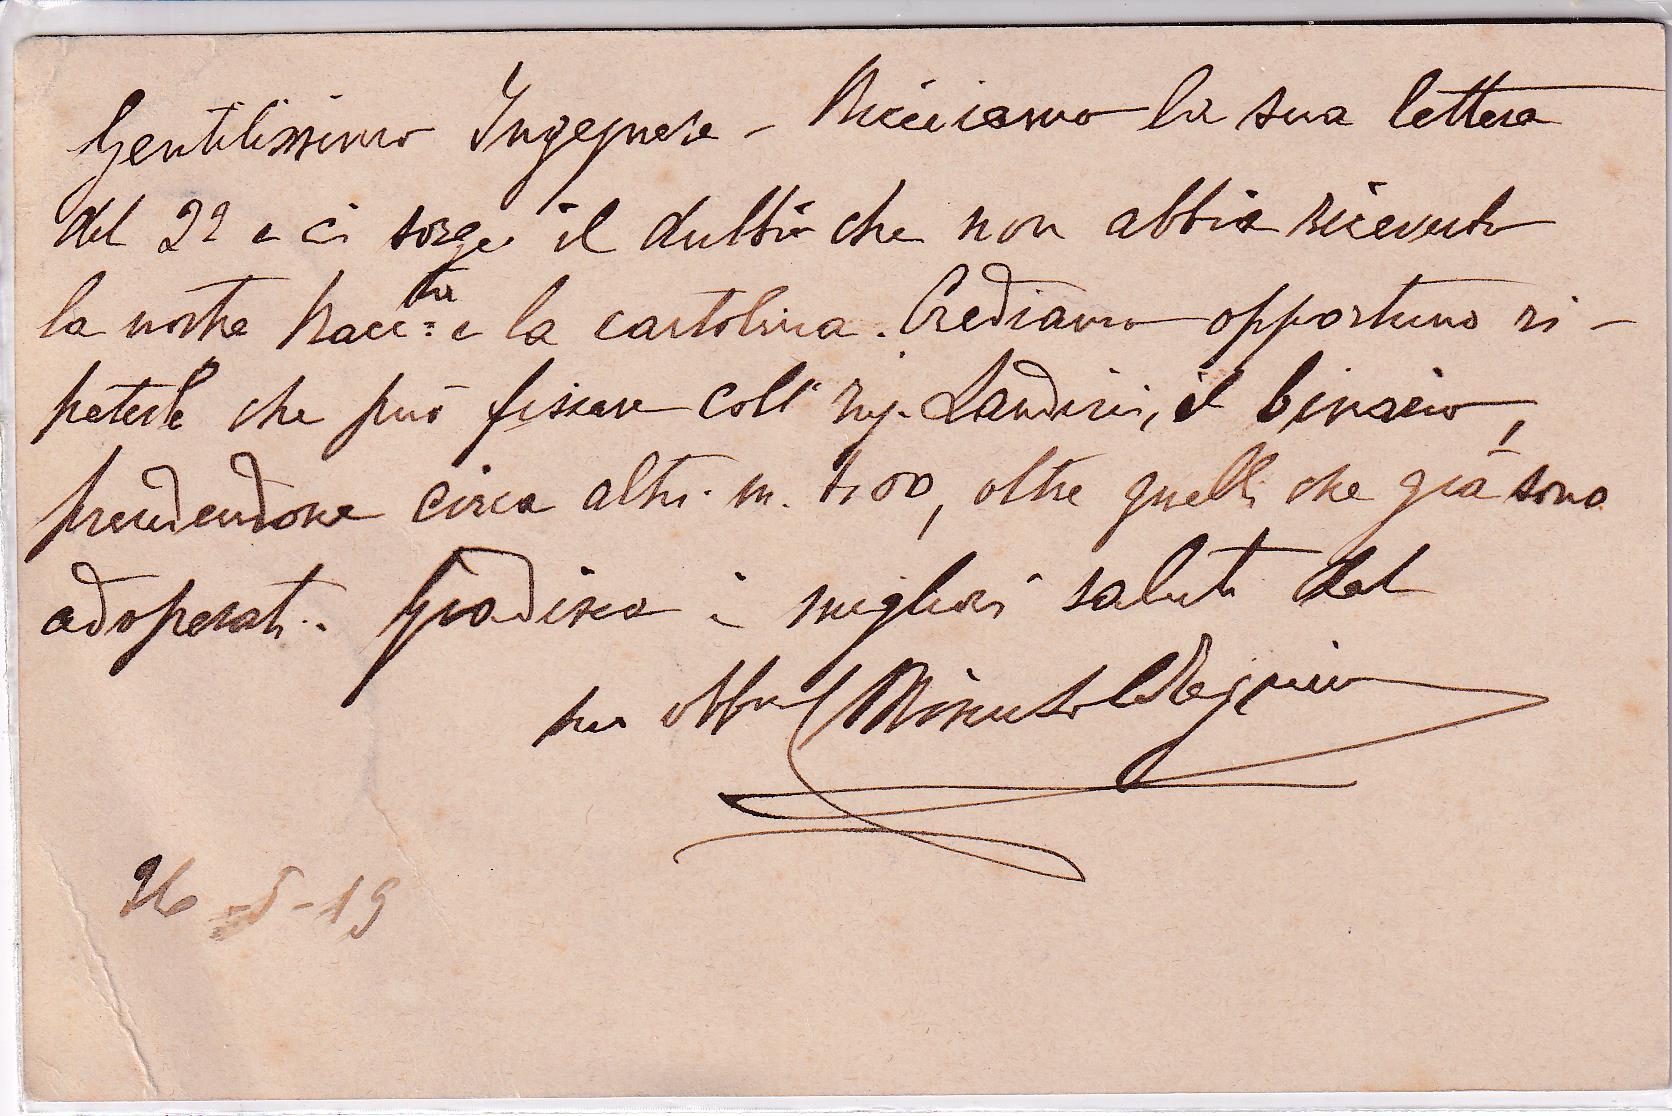 Gentilissimo Ingegnere - Riceviamo la sua lettera
del 22 e ci sorge il dubbio che non abbia ricevuto
la nostra Racc:ta e la cartolina. Crediamo opportuno ri-
peterle che può fissare coll' Ing. Landini, il binario,
prendendone circa altri m. 400, oltre quelli che già sono
adoperati. Gradisca i migliori saluti dal
suo obbmo Minutoli Tegrimi
26-5-19